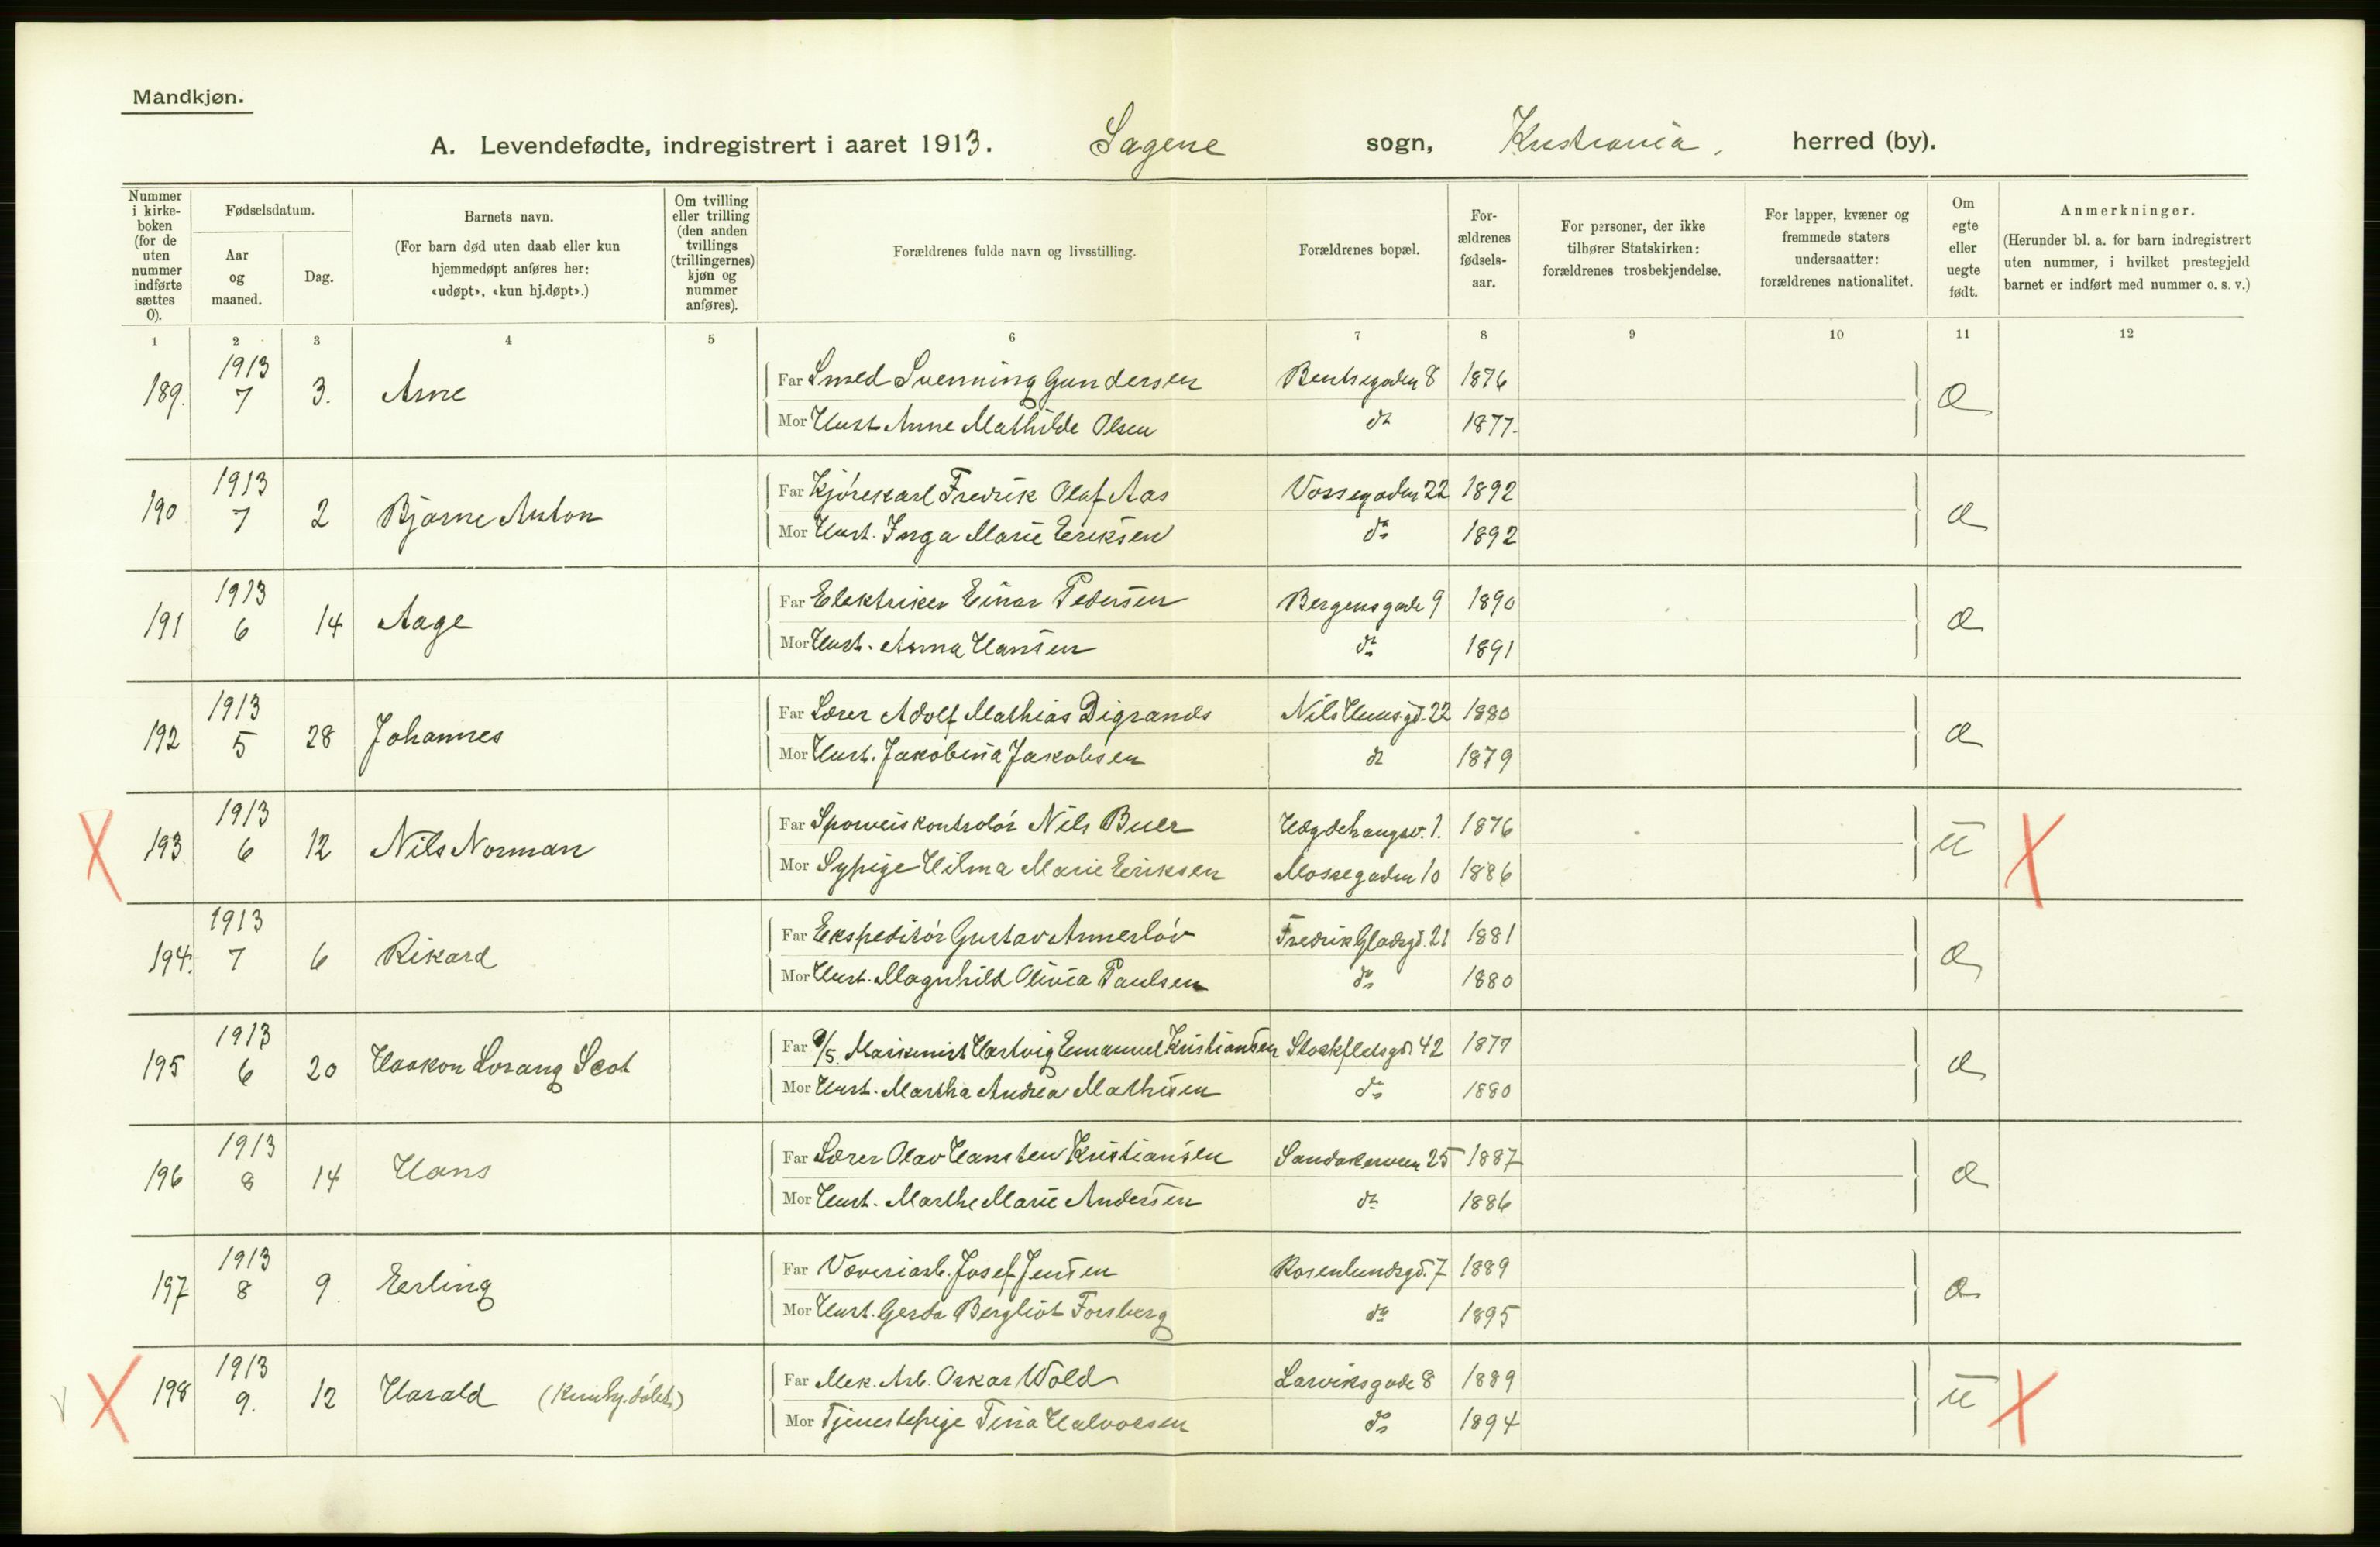 Mandkjøn.
A. Levendefødte, indregistrert i aaret 1913. Sagene sogn, Kristiania, herred (by).
Nummer i kirke-boken (for de uten nummer indførte sættes 0).
Fødselsdatum.
Aar og maaned.
Dag.
Barnets navn.
(For barn død uten daab eller kun hjemmedøpt anføres her: «udøpt», «kun hj.døpt».)
Om tvilling eller trilling (den anden tvillings (trillingernes) kjøn og nummer anføres).
Forældrenes fulde navn og livsstilling.
Forældrenes bopæl.
For-ældrenes fødsels-aar.
For personer, der ikke tilhører Statskirken: forældrenes trosbekjendelse.
For lapper, kvæner og fremmede staters undersaatter: forældrenes nationalitet.
Om egte eller uegte født.
Anmerkninger.
(Herunder bl. a. for barn indregistrert uten nummer, i hvilket prestegjeld barnet er indført med nummer o. s. v.)
1 2 3 4 5 6 7 8 9 10 11 12
189. 1913 7 3. Arne
Far Smed Svenning Gundersen Bentsegaden 8 1876
Mor Hust Anne Mathilde Olsen do 1877.
æ
190 1913 7 2 Bjarne Anton
Far Kjørekarl Fredrik Olaf Aas Vossegaden 22 1892
Mor Hust. Inga Marie Eriksen do 1892
æ
191 1913 6 14 Aage
Far Elektriker Einar Pedersen Bergensgade 9 1890
Mor Hust. Anna Hansen do 1891
æ
192 1913 5 28 Johannes
Far Lærer Adolf Mathias Digranes Nils Huusgd. 22 1880
Mor Hust. Jakobina Jakobsen do 1879
æ
X 193 1913 6 12 Nils Norman
Far Sporveiskontrolør Nils Buer Hægdehaugsv. 1. 1876
Mor Sypige Hilma Marie Eriksen Mossegaden 10 1886
u X
194. 1913 7 6 Rikard
Far Ekspeditør Gustav Annerløv Fredrik Gladsgd. 21 1881
Mor Hust. Magnhild Olivia Paulsen do 1880
æ
195 1913 6 20 Haakon Lorang Scot
Far Maskinist Hartvig Emanuel Kristiansen Stockfletsgd. 42 1877
Mor Hust. Martha Andrea Mathisen do 1880
æ
196 1913 8 14 Hans
Far Lærer Olav Hansten Kristiansen Sandakerveien 25 1887
Mor Hust. Marthe Marie Andersen do 1886
æ
197 1913 8 9 Erling
Far Væveriarb. Josef Jensen Rosenlundsgd. 7 1889
Mor Hust. Gerda Bergliot Forsberg do 1895
æ
X 198 1913 9. 12 Harald (kun hj. døbt)
Far Mek. Arb. Oskar Wold Larviksgade 8 1889
Mor Tjenestepige Tina Halvorsen do 1894
u X